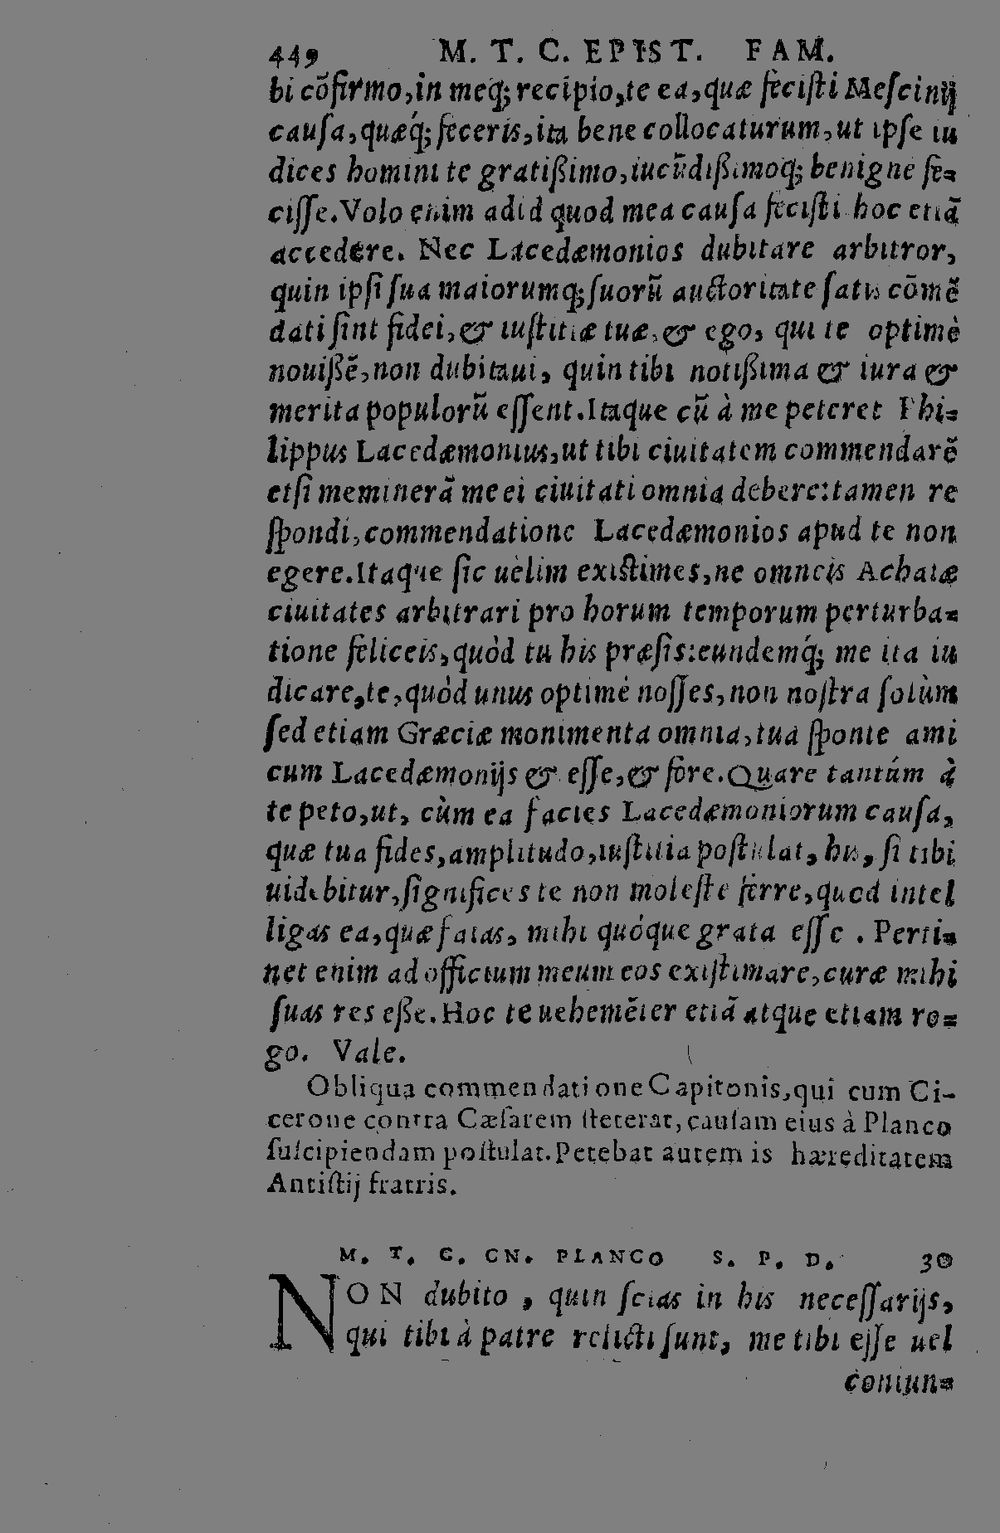 449 M. T. C. EPIST. FAM.
bi cõfirmo,in meq́; recipio,te ea,quæ fecisti Mescinij
causa,quæq́; feceris,ita bene collocaturum,ut ipse iu
dices homini te gratißimo,iucũdißimoq́; benigne fe=
cisse.Volo enim ad id quod mea causa fecisti hoc etiã
accedere. Nec Lacedæmonios dubitare arbitror,
quin ipsi sua maiorumq́; suorũ auctoritate satis cõmẽ
dati sint fidei,& iustitiæ tuæ,& ego, qui te optimè
nouißẽ,non dubitaui, quin tibi notißima & iura &
merita populorũ essent.Itaque cũ à me peteret Phi=
lippus Lacedæmonius,ut tibi ciuitatem commendarẽ
etsi meminerã me ei ciuitati omnia debere:tamen re
spondi,commendatione Lacedæmonios apud te non
egere.Itaque sic uelim existimes,ne omneis Achaiæ
ciuitates arbitrari pro horum temporum perturba=
tione feliceis,quòd tu his præsis:eundemq́; me ita iu
dicare,te,quòd unus optimè nosses,non nostra solùm
sed etiam Græciæ monimenta omnia,tua sponte ami
cum Lacedæmonijs & esse,& fore.Quare tantúm à
te peto,ut, cùm ea facies Lacedæmoniorum causa,
quæ tua fides,amplitudo,iustitia postulat, his, si tibi
uidebitur,significes te non moleste ferre,quod intel
ligas ea,quæ facias, mihi quóque grata esse . Perti=
net enim ad officium meum eos existimare,curæ mihi
suas res eße.Hoc te uehemẽter etiã atque etiam ro=
go. Vale.
Obliqua commendatione Capitonis,qui cum Ci-
cerone contra Cæsarem steterat,causam eius à Planco
suscipiendam postulat.Petebat autem is hæreditatem
Antistij fratris.
M. T. C. CN. PLANCO S. P. D. 30
NON dubito , quin scias in his necessarijs,
qui tibi à patre relicti sunt, me tibi esse uel
coniun=